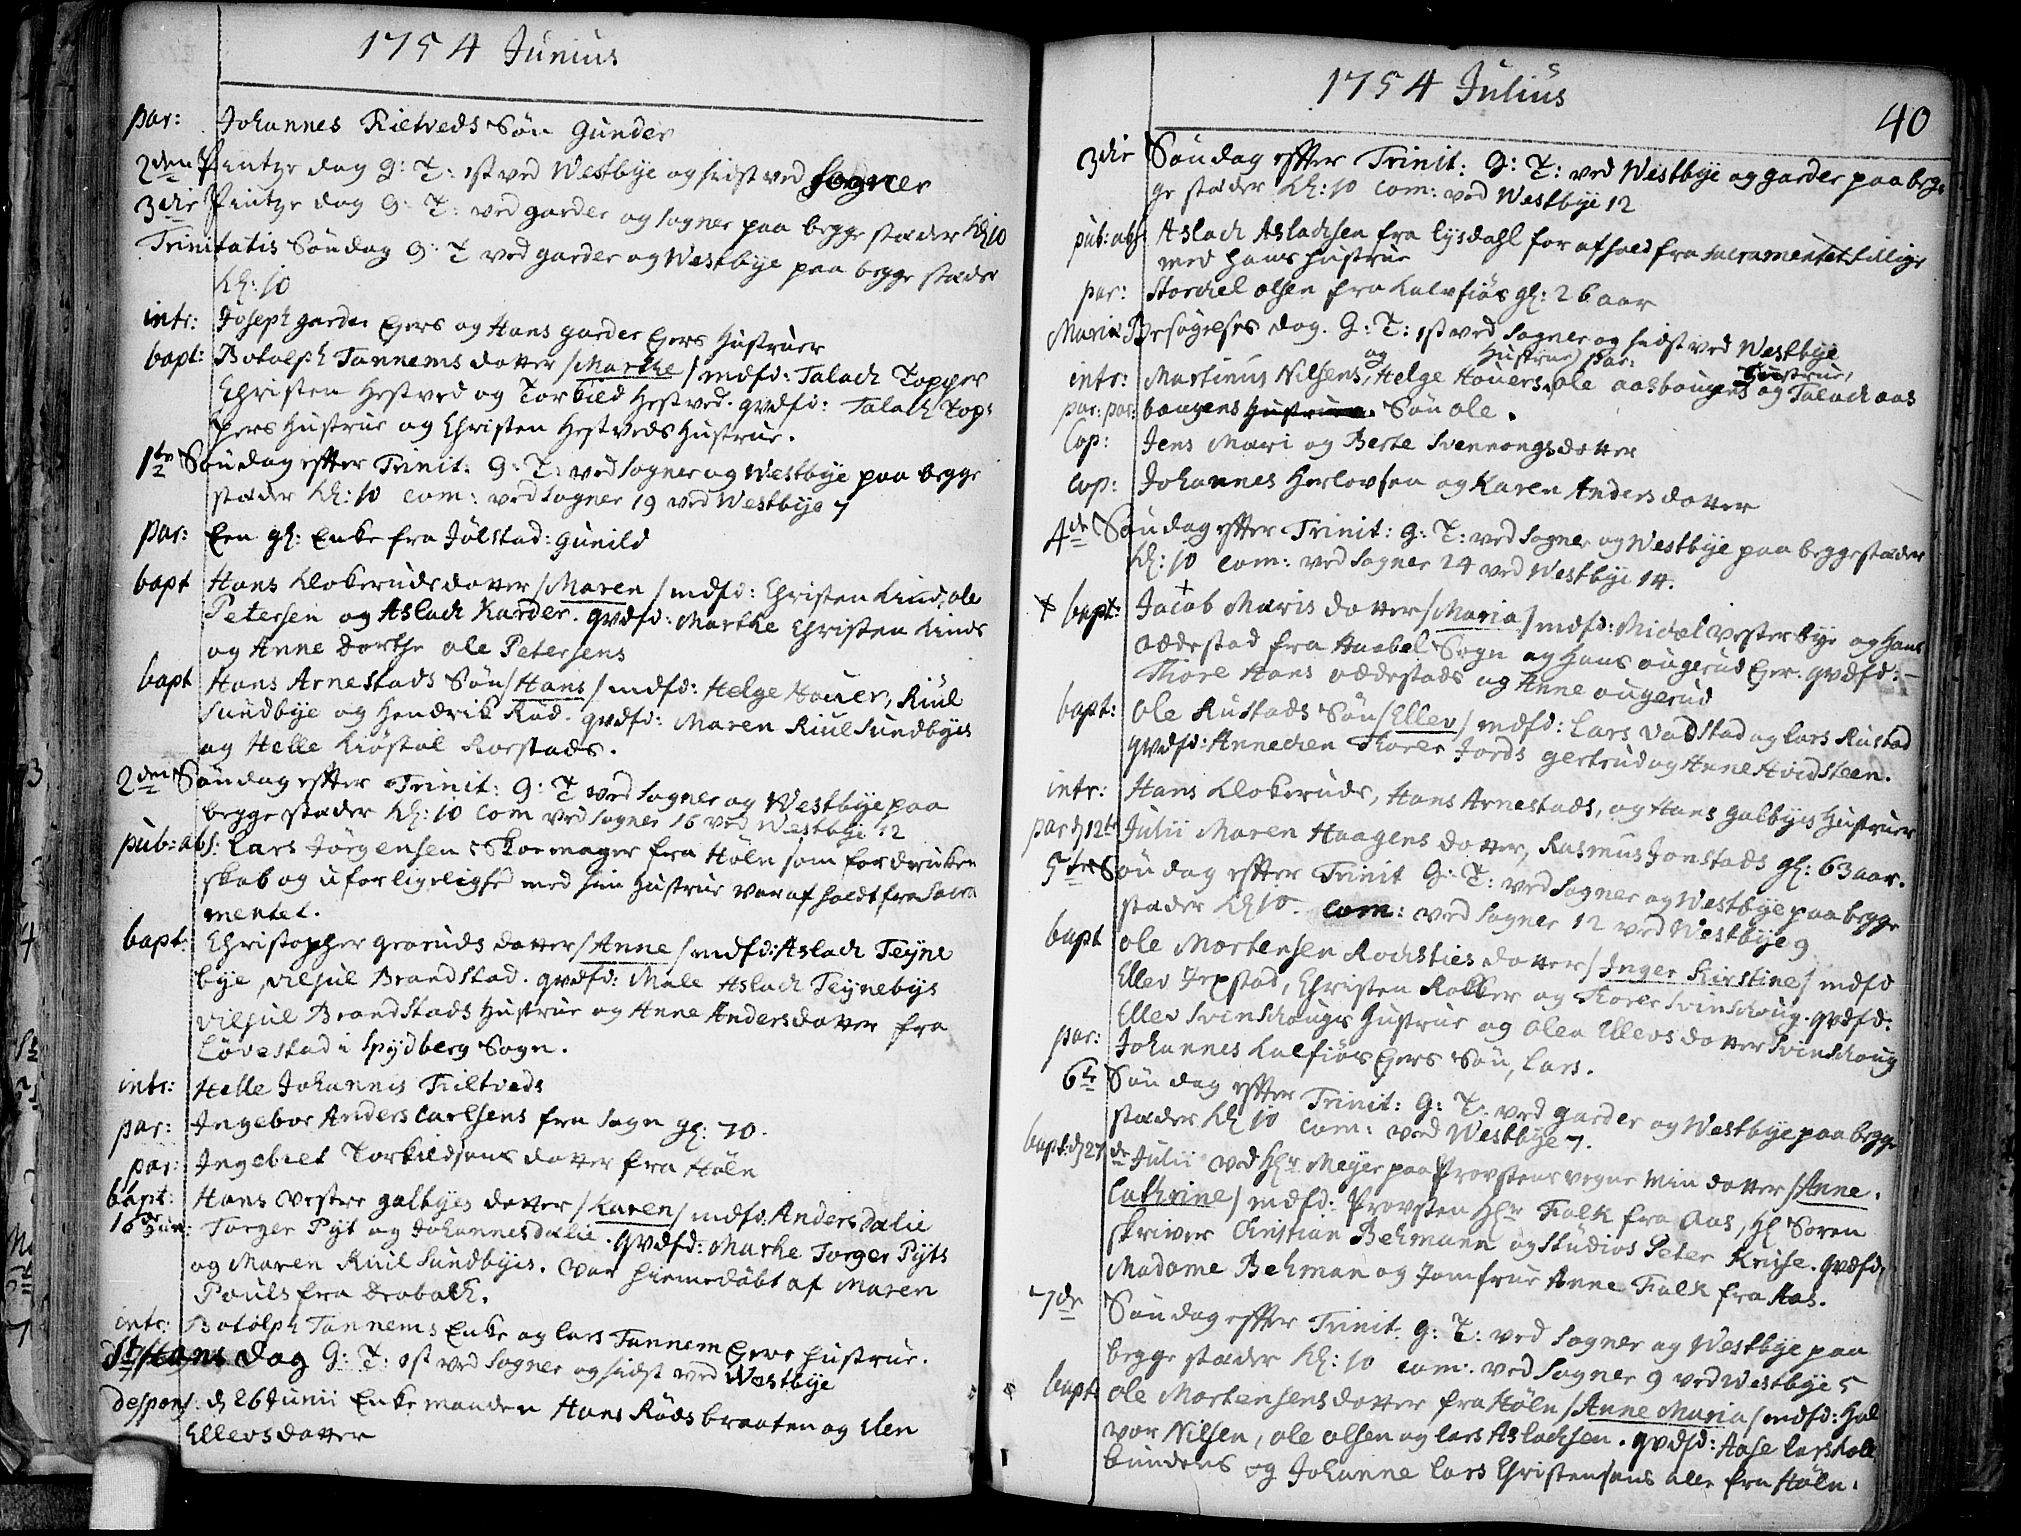 1754 Junius
par: Johannes Kieltveds Søn Gunder
2den Pintze dag G: T: 1st ved Westbye og sidst ved Sogner
3die Pintze dag G: T: ved garder og Sogner paa begge stæder Kl: 10
Trinitatis Søndag G: T ved garder og Westbye paa begge stæder
Kl: 10
intr: Joseph garder Eyers og Hans garder Eyers Hustruer
bapt: Botolph Tannems dotter /Marthe/ mdfd: Talach Topper
Christen Hestved og Torkild Hestved. qvdfd: Talach Top-
pers Hustrue og Christen Hestveds Hustrue.
1te Søndag efter Trinit: G: T: ved Sogner og Westbye paa begge
stæder Kl: 10 Com: ved Sogner 19 ved Westbye 7
par: Een gl: Enke fra Jølstad: Gunild
bapt Hans Klokeruds dotter /Maren/ mdfd: Christen Lind, ole
Petersen og Aslach Karder. qvdfd: Marthe Christen Linds
og Anne Dorthe ole Petersens
bapt Hans Arnestads Søn /Hans/ mdfd: Helge Houer, Riul
Sundbye og Hendrik Rød. qvdfd: Maren Riul Sundbyes
og Helle Kiøstol Korstads.
2den Søndag efter Trinit: G: T ved Sogner og Westbye paa
begge stæder Kl: 10 Com ved Sogner 16 ved Westbye 12
pub: abs: Lars Jørgensen Skoemager fra Høln som for drucken
skab og uforligelighed med sin Hustrue var afholdt fra Sacra
mentet.
bapt: Christopher graruds dotter /Anne/ mdfd: Aslach Teyne
bye, Viljul Brandstad. qvdfd: Male Aslach Teynebys
Viljul Brandstads Hustrue og Anne Anders dotter fra
Løvestad i Spydberg Sogn.
intr: Helle Johannis Kieltveds
par: Ingebor Anders Carlsens fra Sogn gl: 70.
par: Ingebret Torkildsens dotter fra Høln
bapt: Hans vestre galbyes dotter /Karen/ mdfd: Anders Dalie
16de Jun: Torger Pyt og Johannes Dalie. qvdfd: Marhe Torger Pyts
og Maren Riul Sundbyes. var hiemedøbt af Maren
Pouls fra Drøbach.
intr: Botolph Tannems Enke og Lars Tannem Eyers Hustrue.
St Hans Dag G: T: 1st ved Sogner og sidst ved Westbye
despons: d 26 Junii Enke manden Hans Rødsbraaten og Elen
Ellevsdotter
1754 Julius
40
3die Søndag efter Trinit: G: T: ved Westbye og garder paa beg-
ge stæder Kl: 10 Com: ved Westbye 12
pub: abs: Aslach Aslachsen fra Eysdahl for afhold fra Sacramentet tillige
med hans Hustrue
par: Storchel olsen fra Kalvfiøs gl: 26 aar
Mariæ Besøgelses dag. G: T: 1st ved Sogner og sidst ved Westbye
og Hustrue/ par: Hustrue/
intr: Martinus Nilsens, Helge Houers, ole aasbougens og Talach aas
par: par: bougens Hustrue. Søn ole.
Cop: Jens Mæri og Berte Svennongsdotter
Cop: Johannes Herlovsen og Karen Andersdotter
4de Søndag efter Trinit: G: T: ved Sogner og Westbye paa begge stæder
Kl: 10 Com: ved Sogner 24 ved Westbye 14.
+ bapt: Jacob Mæris dotter /Maria/ mdfd: Nicol Vesterbye og Hans
oddestad fra Haabel Sogn og Hans ougerud Eyer. qvdfd:
Thore Hans oddestads og Anne ougerud
bapt: Ole Rustads Søn /Ellev/ mdfd: Lars Vadstad og Lars Rustad
qvdfd: Annechen Thorer Jords gertrud og Anne Hvidsteen.
intr: Hans Klokeruds, Hans Arnestads, og Hans galbyes Hustruer
par d 12te Julii Maren Haagens dotter, Rasmus Jonstads gl: 63 aar.
5te Søndag efter Trinit G: T: ved Sogner og Westbye paa begge
stæder Kl 10. Com: ved Sogner 12 ved Westbye 9
bapt Ole Mortensen Rochsties dotter /Inger Kirstine/ mdfd
Ellev Jepstad, Christen Rokker og Thorer Svinschoug. qvdfd:
Ellev Svinschougs Hustrue og Olea Ellevs dotter Svinschoug
par: Johannes Kalfiøs Eyers Søn, Lars.
6te Søndag efter Trinit: G: T: ved garder og Westbye paa begge
stæder Kl 10 Com: ved Westbye 7.
bapt: d 27de Julii ved Hr Meyer paa Provstens vegne min dotter /Anne
Cathrine/ mdfd: Provsten Hr Falk fra Aas, Hr Soren
skriver Christian Behmann og Studios Peter Kruse. qvdfd:
Madame Behman og Jomfrue Anne Falk fra Aas.
7de Søndag efter Trinit: G: T: ved Sogner og Westbye paa
begge stæder Kl: 10 Com: ved Sogner 9 ved Westbye 5
bapt Ole Mortensens dotter fra Høln /Anne Maria/ mdfd: Hal
vor Nilsen, ole olsen og Lars Aslachsen. qvdfd: Aase Lars Kolt
bundens og Johanne Lars Christensens alle fra Høln.